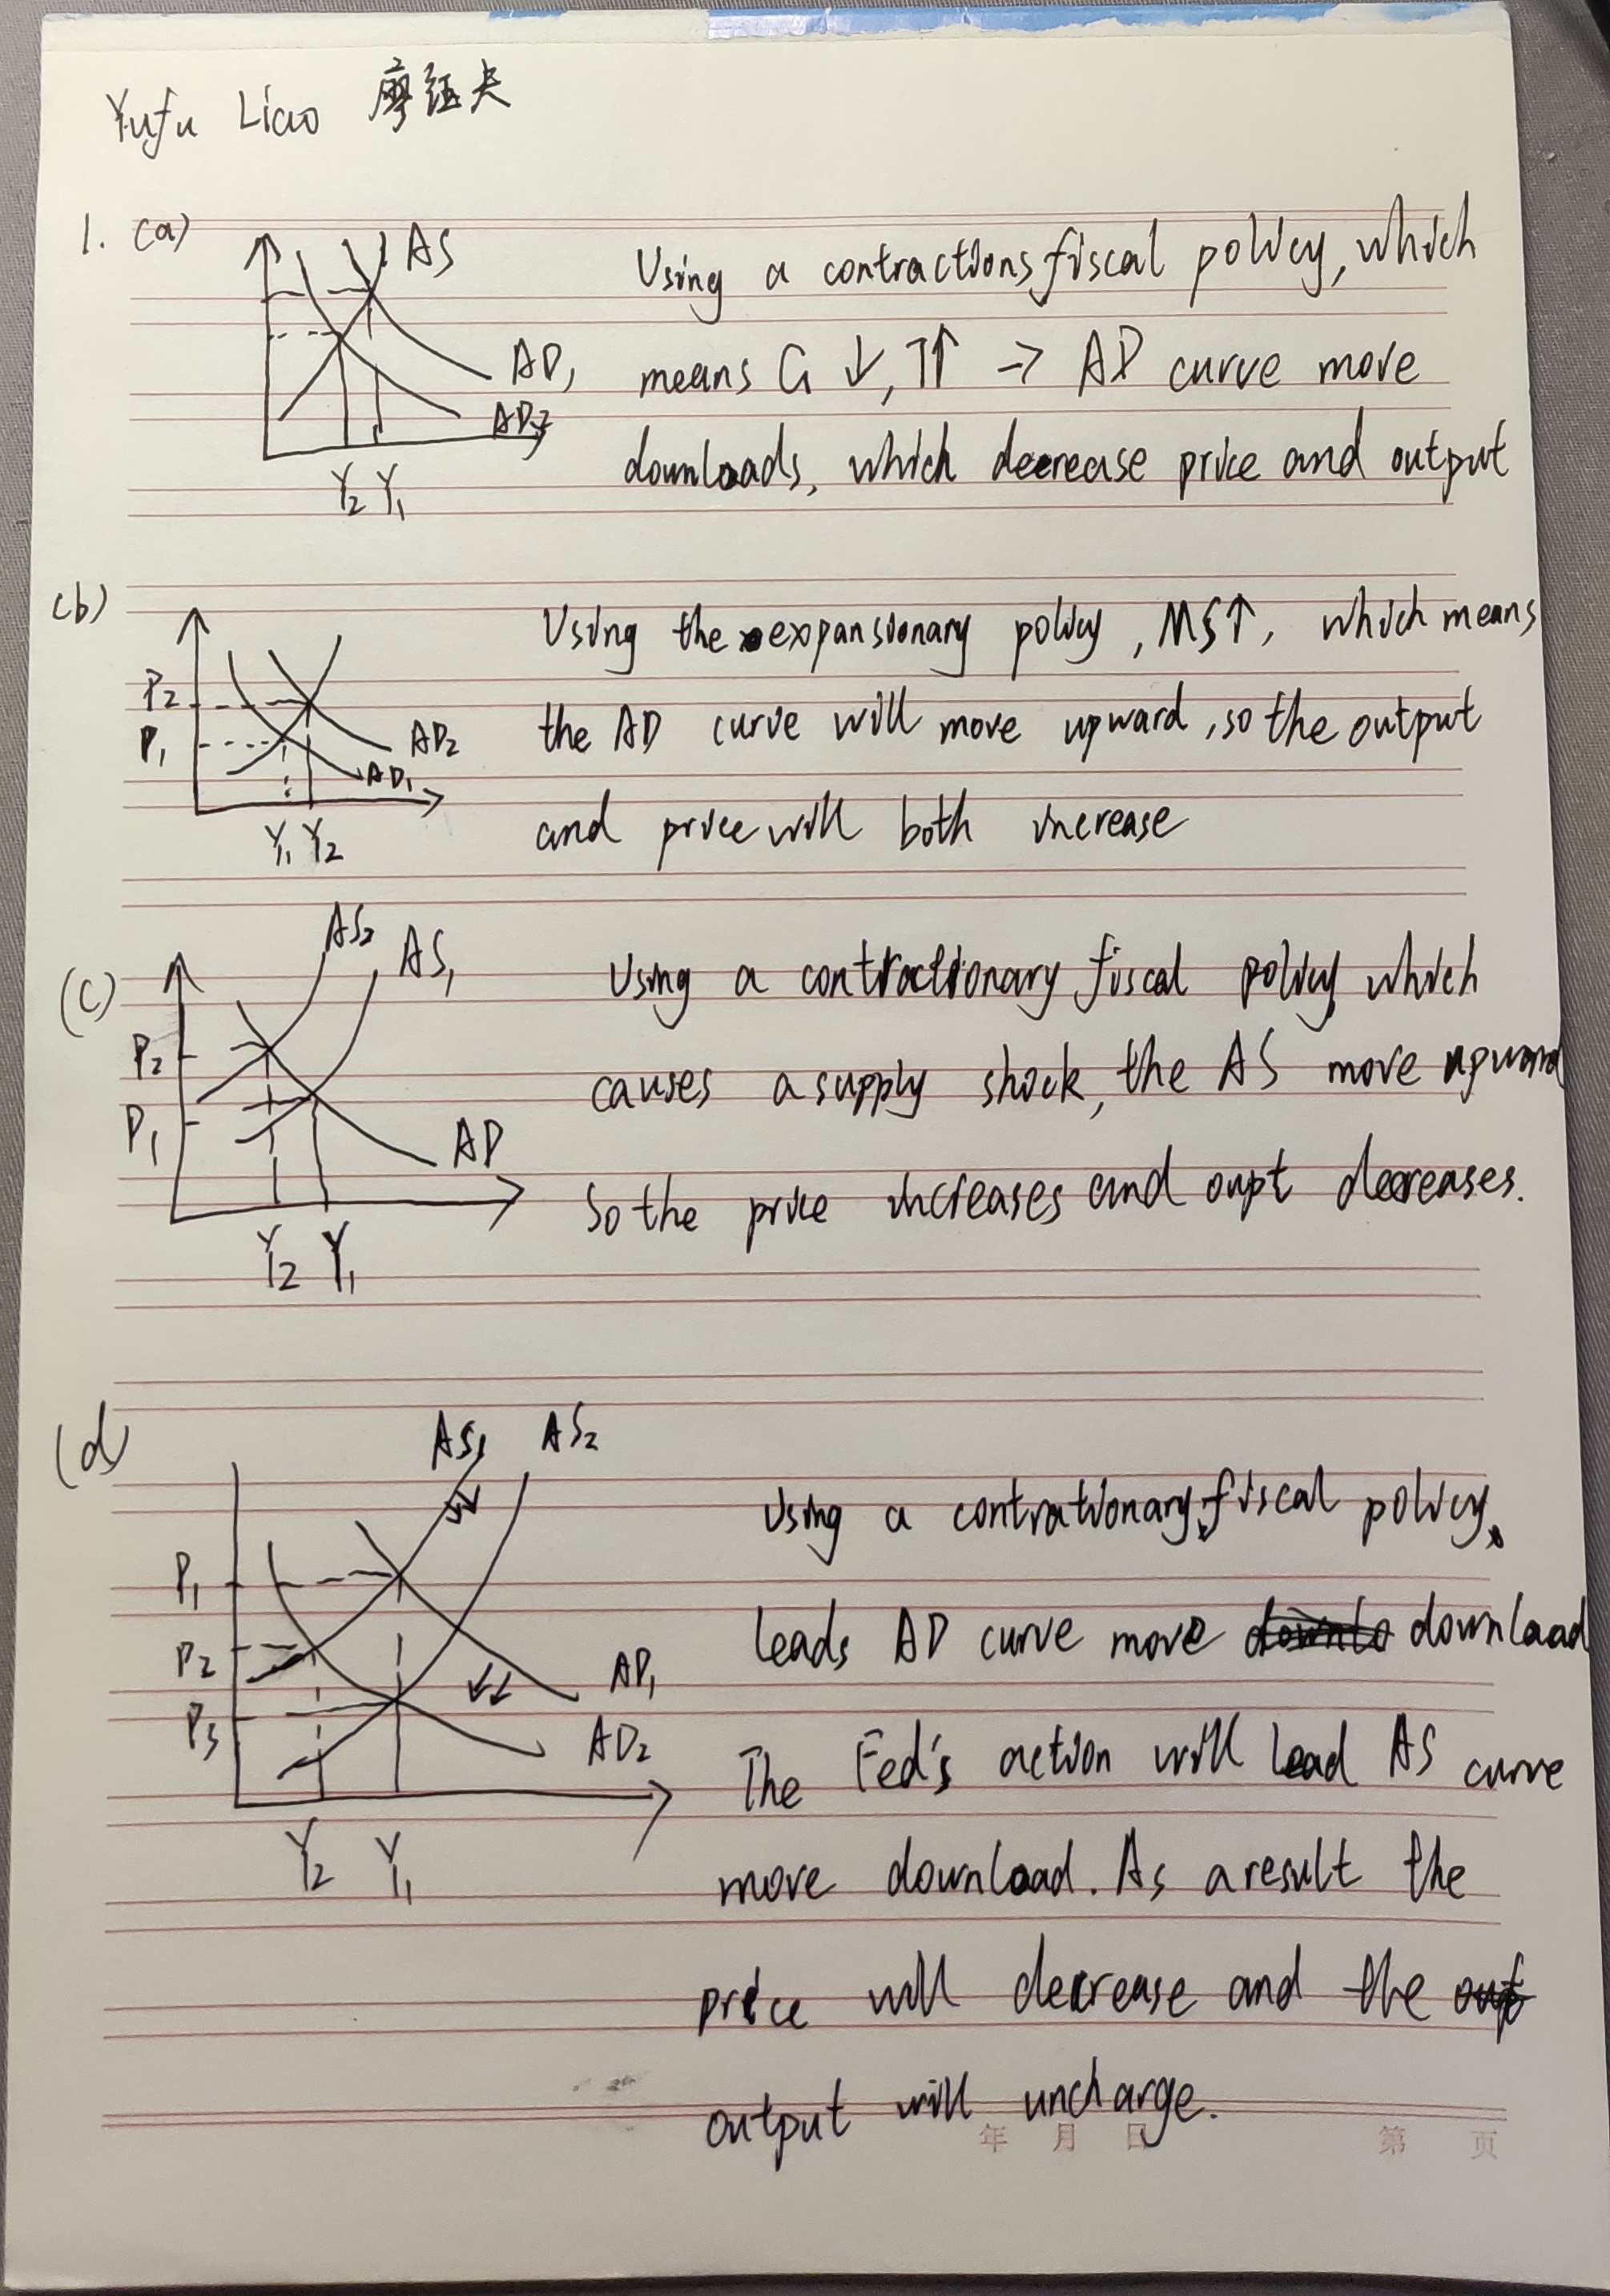 Yufu Liao 廖钰夫
1. (a)
AS
AD1
AD2
Y2 Y1
Using a contractions fiscal policy, which
means G ↓, T↑ → AD curve move
downloads, which decrease price and output
(b)
P2
P1
AD2
AD1
Y1 Y2
Using the expansionary policy, MS↑, which means
the AD curve will move upward, so the output
and price will both increase
(c)
AS2 AS1
P2
P1
AD
Y2 Y1
Using a contractionary fiscal policy which
causes a supply shock, the AS move upward
So the price increases and oupt decreases.
(d)
AS1 AS2
P1
P2
P3
AD1
AD2
Y2 Y1
Using a contrationary fiscal policy,
leads AD curve move download
The Fed's action will lead AS curve
move download. As a result the
price will decrease and the
output will uncharge.
年 月 日 第 页